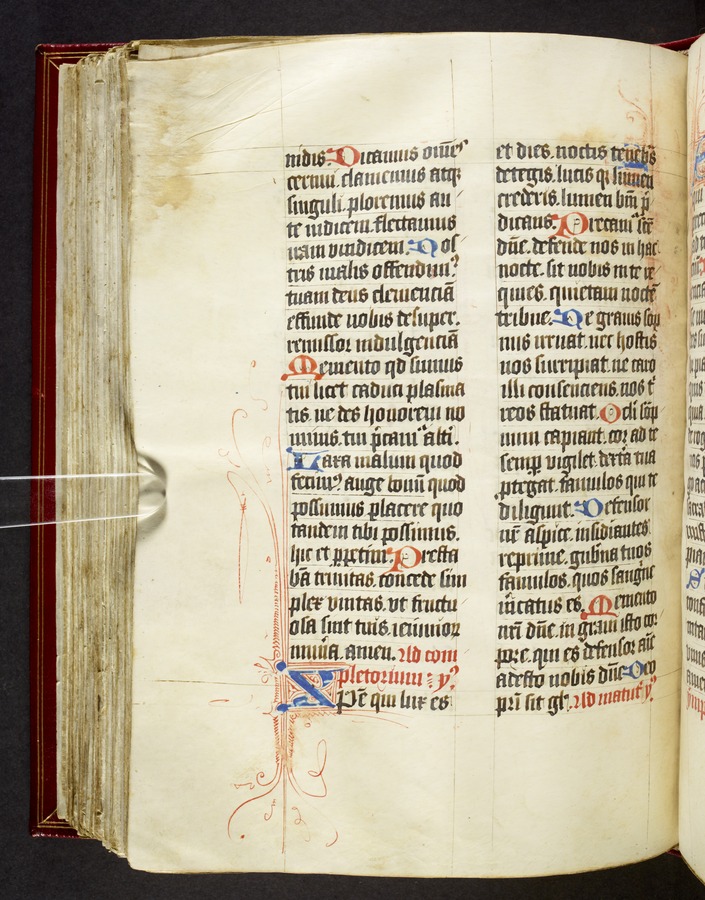 nidis. Dicamus om̄es
cernui. clamemus atqꝫ
singuli. ploremus an
te iudicem. flectamus
iram vindicem. Nos
tris malis offendimꝰ
tuam deus clemenciā
effunde nobis desuper.
remissor indulgenciā
Memento qd sumus
tui licet caduci plasma
tis. ne des honorem no
minis. tui p̄camᷣ alti.
Laxa malum quod
fecimꝰ auge bonū quod
possimus placere quo
tandem tibi possimus.
hic et ꝑpetim. Presta
bā trinitas. concede sim
plex vnitas. vt fructu
osa sint tuis. ieiunioꝝ
mun̄a. amen. Ad com
pletorium : yꝰ
XPē qui lux es
et dies. noctis teneb̄s
detegis. lucis qꝫ lumen
crederis. lumen bm̄ p̄
dicans. Precamᷣ stē
dn̄e. defende nos in hac
nocte. sit nobis in te re
quies. quietam noctē
tribue. Ne grauis sop
nus irruat. nec hostis
nos surripiat. ne caro
illi consenciens. nos t̄
reos statuat. Ocli sōp
num capiant. cor ad te
semꝑ vigilet. dext̄a tua
ꝓtegat. famulos qui te
diligunt. Defensor
nr̄ē aspice. insidiantes
reprime. gub̄na tuos
famulos. quos sanguīe
m̄catus es. Memento
nr̄i dn̄e. in graui isto cor
pore. qui es defensor aīe
adesto nobis dn̄e. Deo
pr̄i sit gl̄. Ad matut̄ yꝰ